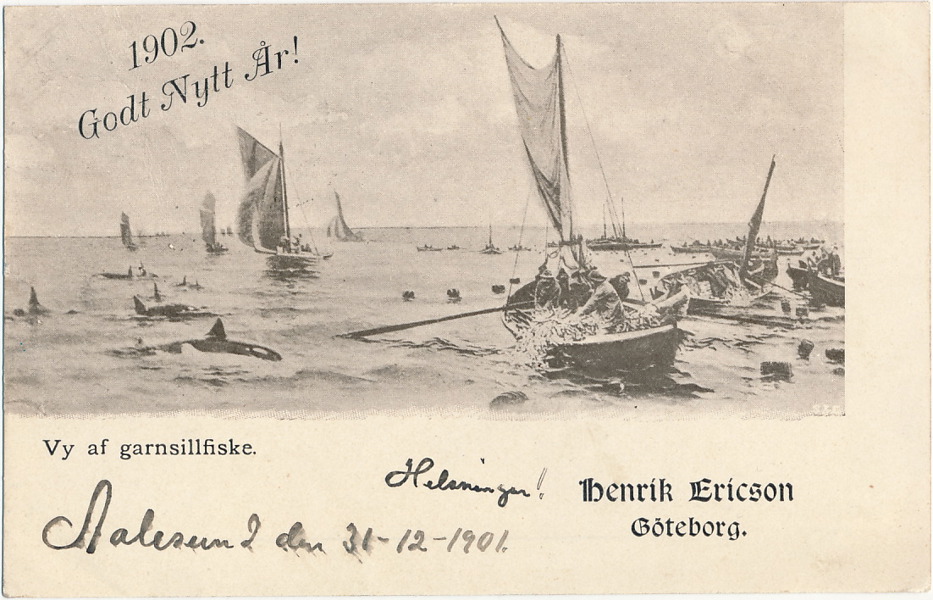 1902.
Godt Nytt År!
Vy af garnsillfiske.
Helsningar!
Henrik Ericson
Göteborg.
Aalesund den 31-12-1901.